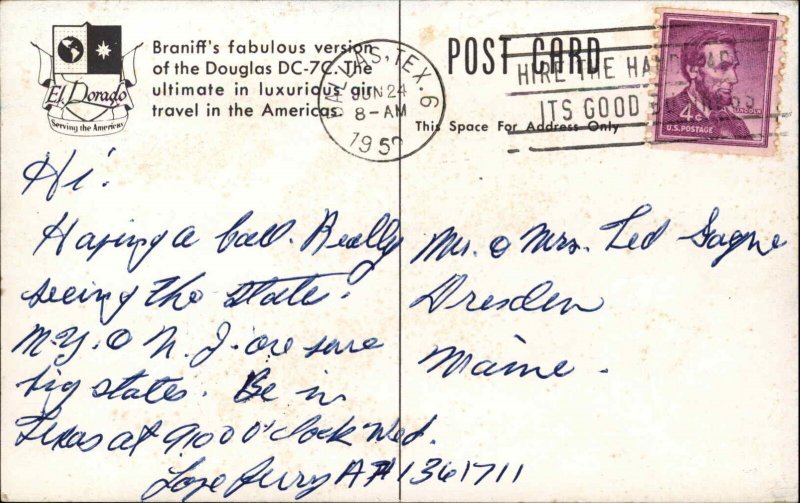 Braniff's fabulous version
of the Douglas DC-7C. The
ultimate in luxurious air
travel in the Americas
El Dorado
Serving the Americas
POST CARD
This Space For Address Only
DALLAS, TEX. 6
JUN 24
8-AM
195
HIRE THE HAND
ITS GOOD
4¢
U.S. POSTAGE
Hi!
Having a ball. Really
seeing the state.
N.Y. & N.J. are sure
big states. Be in
Texas at 9:00 O'clock Wed.
Love Jerry AF 1361711
Mr. & Mrs. Ted Gagne
Dresden
Maine.